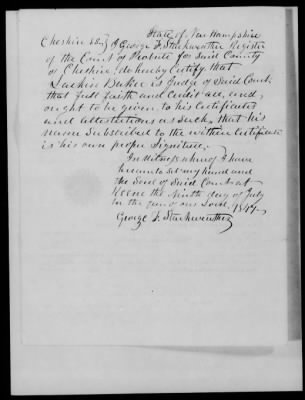 State of New Hampshire
Cheshire SS. I George F. Starkweather Register
of the Court of Probate for Said County
of Cheshire, do hereby Certify that
Larkin Baker is Judge of Said Court
that full faith and Credit are, and
ought to be given to his Certificates
and attestations as Such, that his
name Subscribed to the within Certificate
is his own proper Signature.
In Witness whereof I have
hereunto set my hand and
the Seal of Said Court at
Keene the Ninth day of July
in the year of our Lord, 1847
George F. Starkweather